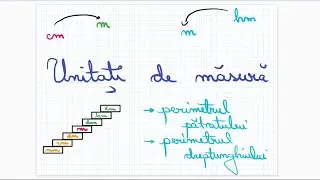 cm m
m hm
Unitați de măsură
hm
dam
m
dm
cm
mm
→ perimetrul
pătratului
→ perimetrul
dreptunghiului